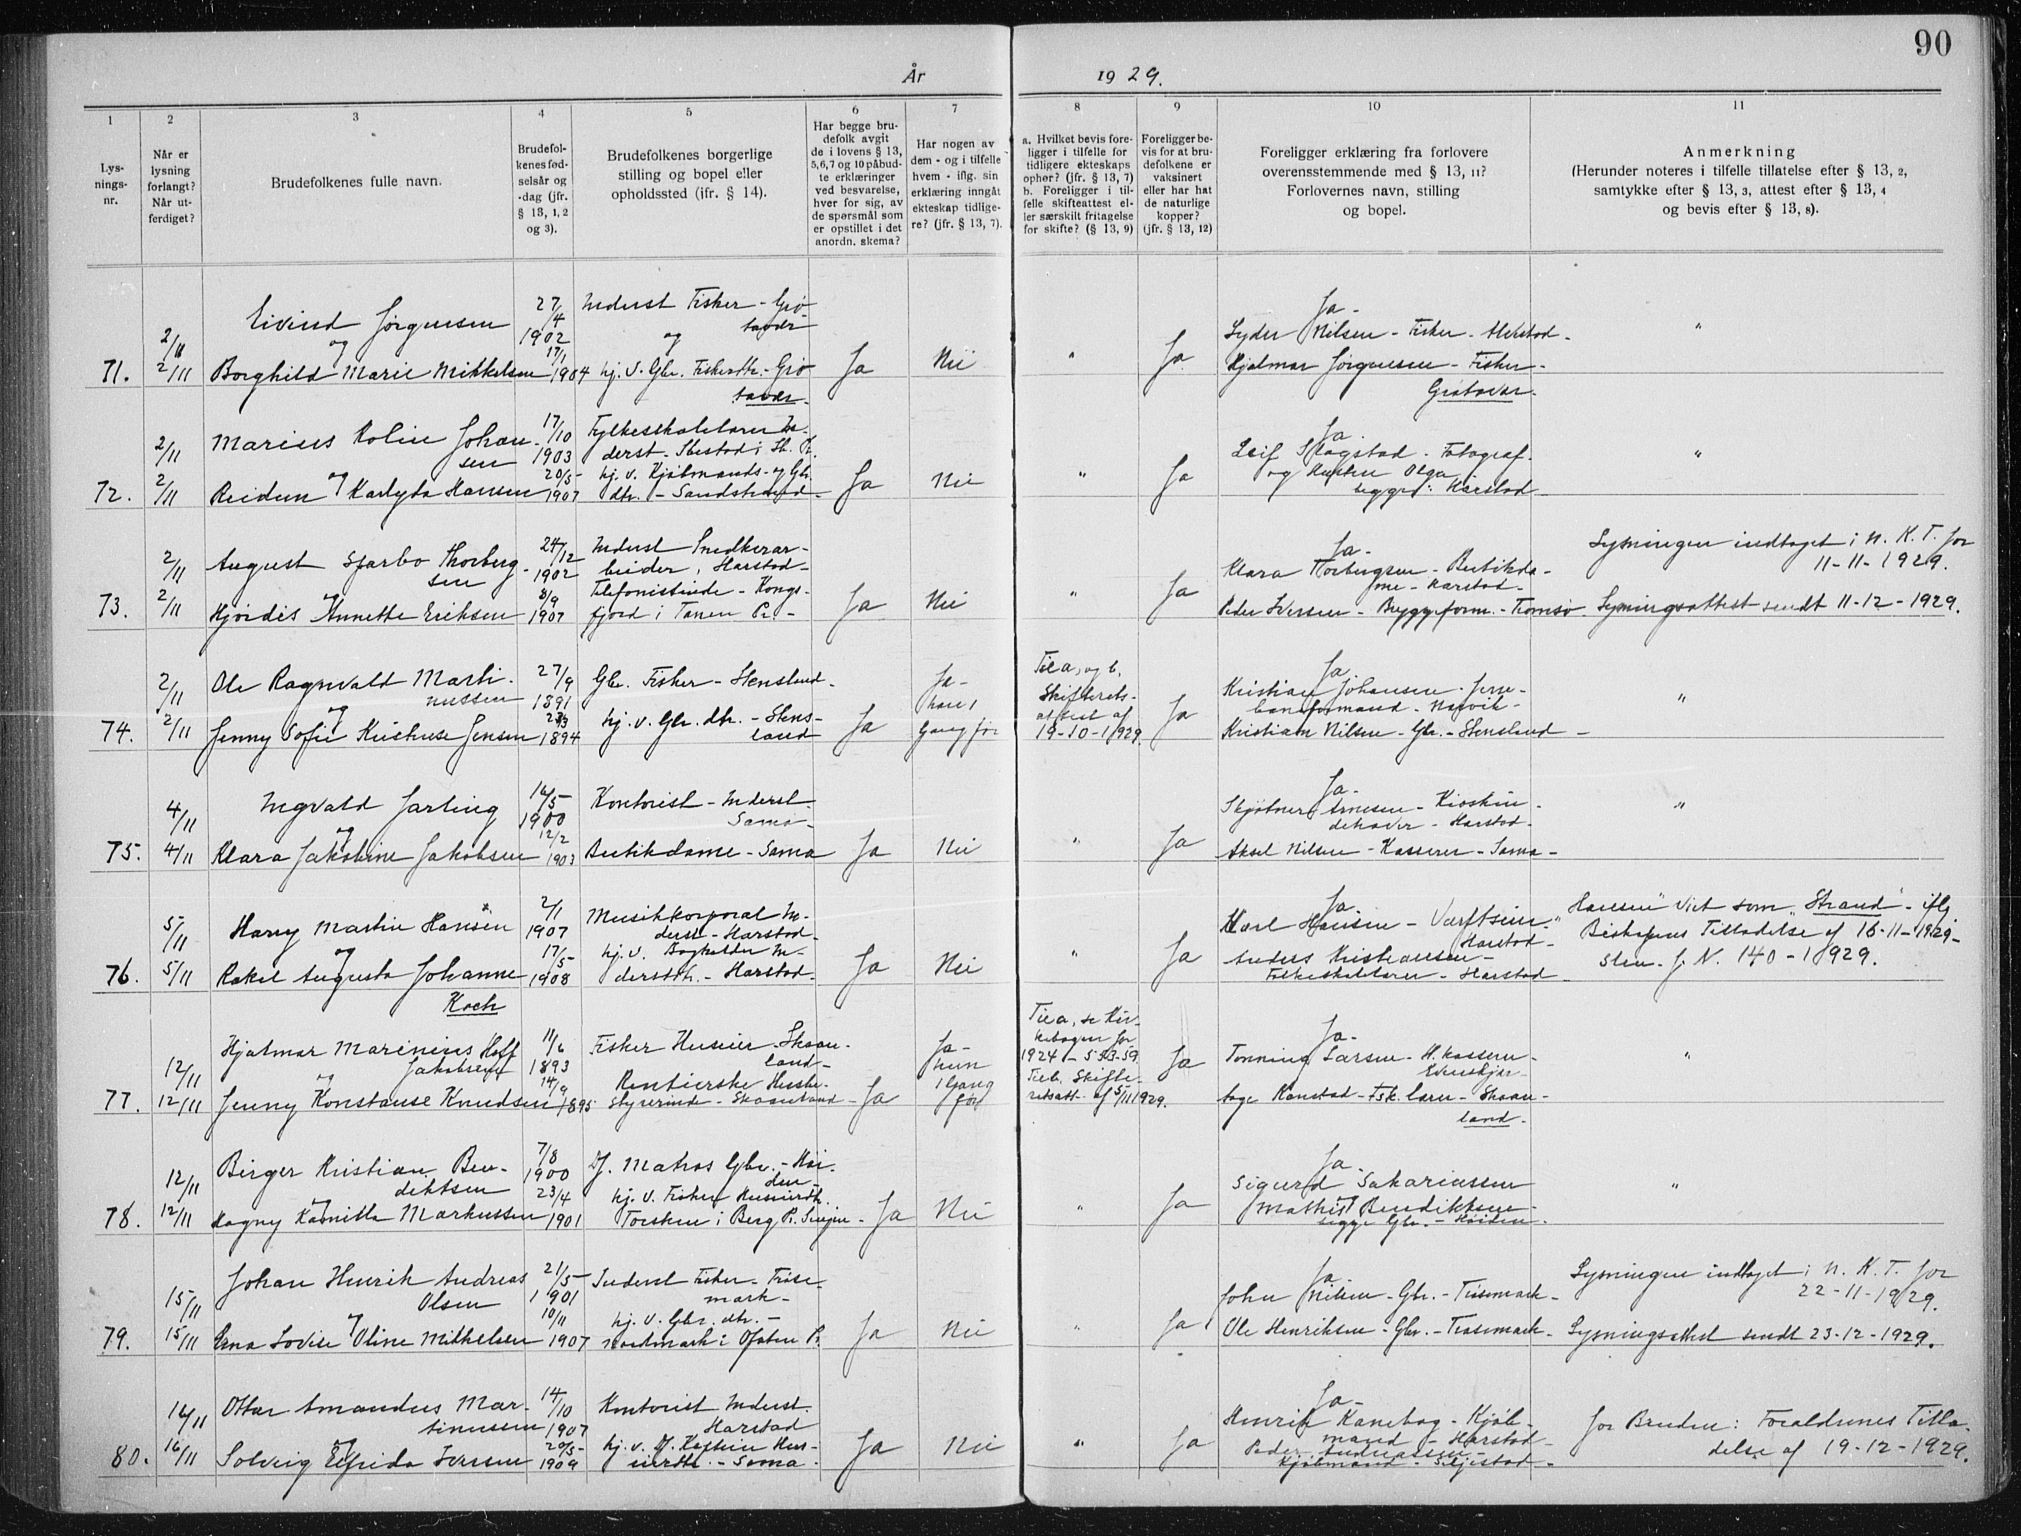 90
År 1929.
1 2 3 4 5 6 7 8 9 10 11
Lys-
nings-
nr.
Når er
lysning
forlangt?
Når ut-
ferdiget?
Brudefolkenes fulle navn.
Brudefol-
kenes fød-
selsår og
-dag (jfr.
§ 13, 1, 2
og 3).
Brudefolkenes borgerlige
stilling og bopel eller
opholdssted (jfr. § 14).
Har begge bru-
defolk avgit
de i lovens § 13,
5,6,7 og 10 påbud-
te erklæringer
ved besvarelse,
hver for sig, av
de spørsmål som
er opstillet i det
anordn. skema?
Har nogen av
dem - og i tilfelle
hvem - iflg. sin
erklæring inngåt
ekteskap tidlige-
re? (jfr. § 13, 7).
a. Hvilket bevis fore-
ligger i tilfelle for
tidligere ekteskaps
ophør? (jfr. § 13, 7)
b. Foreligger i til-
felle skifteattest el-
ler særskilt fritagelse
for skifte? (§ 13, 9)
Foreligger be-
vis for at bru-
defolkene er
vaksinert
eller har hat
de naturlige
kopper?
(jfr. § 13, 12)
Foreligger erklæring fra forlovere
overensstemmende med § 13, 11?
Forlovernes navn, stilling
og bopel.
Anmerkning
(Herunder noteres i tilfelle tillatelse efter § 13, 2,
samtykke efter § 13, 3, attest efter § 13, 4
og bevis efter § 13, 8).
71.
2/11
2/11
Eivind Jørgensen
og
Borghild Marie Mikkelsen
27/4
1902
17/1
1904
Inderst Fisker - Grø-
tavær
og
hj. v. Gbr. Fiskerdtr. - Grø
tavær.
Ja
Nei
"
Ja
Ja -
Lyder Nilsen - Fisker -
Hjalmar Jørgensen - Fisker -
Grøtavær.
"
72.
2/11
2/11
Marius Kolin Johan-
sen
og
Reidun Karlyda Hansen
17/10
1903
20/5
1907
Fylkesskolelærer In-
derst - Ibestad i
hj. v. Kjøbmands- og Gbr.
dtr. - Sandstrand -
Ja
Nei
"
Ja
Ja.
Leif Skogstad - Fotograf.
og Hustru Olga
begge: Harstad -
"
73.
2/11
2/11
August Sjarbo Thorberg-
sen
og
Hjørdis Annette Eriksen
24/12
1902
8/9
1907
Inderst Snedkerar-
beider, Harstad -
Telefonistinde - Kongs-
fjord i Tanen Pr. -
Ja
Nei
"
Ja
Ja -
Klara Torbergsen - Butikda-
me - Harstad -
Peder Iversen - Byggeform. - Tromsø
Lysningen indtaget i N. K. T. for
11-11-1929.
Lysningsattest sendt 11-12-1929.
74.
2/11
2/11
Ole Ragnvald Marti-
nussen
og
Jenny Sofie Jensen
27/9
1891
1894
Gbr. Fisker - Stensland -
hj. v. Gbr. dtr. - Stens-
land
Ja
Ja -
han 1
Gang før
Til a. og b.
Skifterets-
attest af
19-10-1929.
Ja
Ja
Kristian Johansen - Jern-
banformand - Narvik -
Kristian Nilsen - Gbr. - Stensland -
"
75.
4/11
4/11
Ingvald Jarling
og
Klara Jakobine Jakobsen
16/5
1900
12/2
1903
Kontorist - Inderst
Sama -
Butikdame - Sama
Ja
Nei
"
Ja
Ja -
Skjøtner Arnesen - Kioskin-
dehaver - Harstad -
Aksel Nilsen - Kasserer - Sama -
"
76.
5/11
5/11
Harry Martin Hansen
og
Rakel Augusta Johanne
Koch
2/1
1907
17/5
1908
Musikkorporal In-
derst - Harstad -
hj. v. Bagholder In-
derstdtr. - Harstad -
Ja
Nei
"
Ja
Ja.
Karl Hansen - Værftseier -
Harstad -
Anders Kristiansen -
Folkeskolelærer - Harstad
"Hansen" viet som "Strand" - iflg
Biskopens Tilladelse af 16-11-1929 -
J. N. 140-1929.
77.
12/11
12/11
Hjalmar Marinius Hoff
Jakobsen
og
Jenny Konstanse Knudsen
11/6
1893
14/9
1895
Fisker Huseier - Skaan-
land -
Rentierske Husbe-
styrerinde - Skaanland -
Ja
Ja -
hun
1 Gang
før
Til a, se Kir-
kebogen for
1924 -
Til b. Skifte-
retsatt. af 5/11 1929.
Ja
Ja -
Tønning Larsen - H.kasserer -
Evenskjær -
Fsk.lærer - Skaan-
land.
"
78.
12/11
12/11
Birger Kristian Ben-
diktsen
og
Magny Kamilla Markussen
7/8
1900
23/4
1901
Df. Matros Gbr. - Røi-
den -
hj. v. Fisker Huseierdtr.
Torsken i Berg Pr. Senjen -
Ja
Nei
"
Ja
Ja -
Sigurd Sakariassen
Mathis Bendiktsen -
begge Gbr. - Røiden -
"
79.
15/11
15/11
Johan Henrik Andreas
Olsen
og
Erna Lovise Oline Mikkelsen
21/5
1901
10/11
1907
Inderst Fisker -
mark -
hj. v. Gbr. dtr. -
i Ofoten Pr.
Ja
Nei
"
Ja
Ja
John Nilsen - Gbr. -
Ole Henriksen - Gbr. -
Lysningen indtaget i N. K. T. for
22-11-1929.
Lysningsattest sendt 23-12-1929.
80.
16/11
16/11
Ottar Amandus Mar-
tinussen
og
Solveig Elfrida Iversen
14/10
1907
20/5
1909
Kontorist Inderst
Harstad
hj. v. Df. Kaptein Hus-
eierdtr. - Sama.
Ja
Nei
"
Ja
Ja -
Henrik Kanebog - Kjøb-
mand - Harstad -
Peder Andreassen -
Kjøbmand -
for Bruden: Forældrenes Tilla-
delse af 19-12-1929.